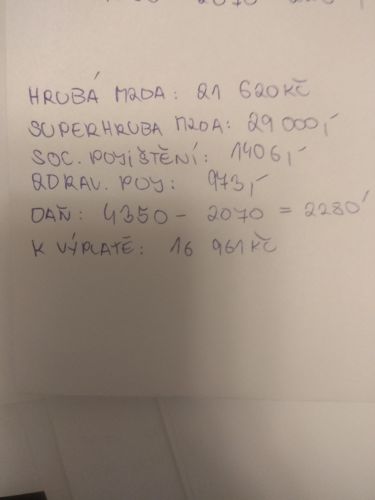 HRUBÁ MZDA: 21 620 KČ
SUPERHRUBA MZDA: 29 000,-
SOC. POJIŠTĚNÍ: 1406,-
ZDRAV. POJ: 973,-
DAŇ: 4350 - 2070 = 2280
K VÝPLATĚ: 16 961 KČ